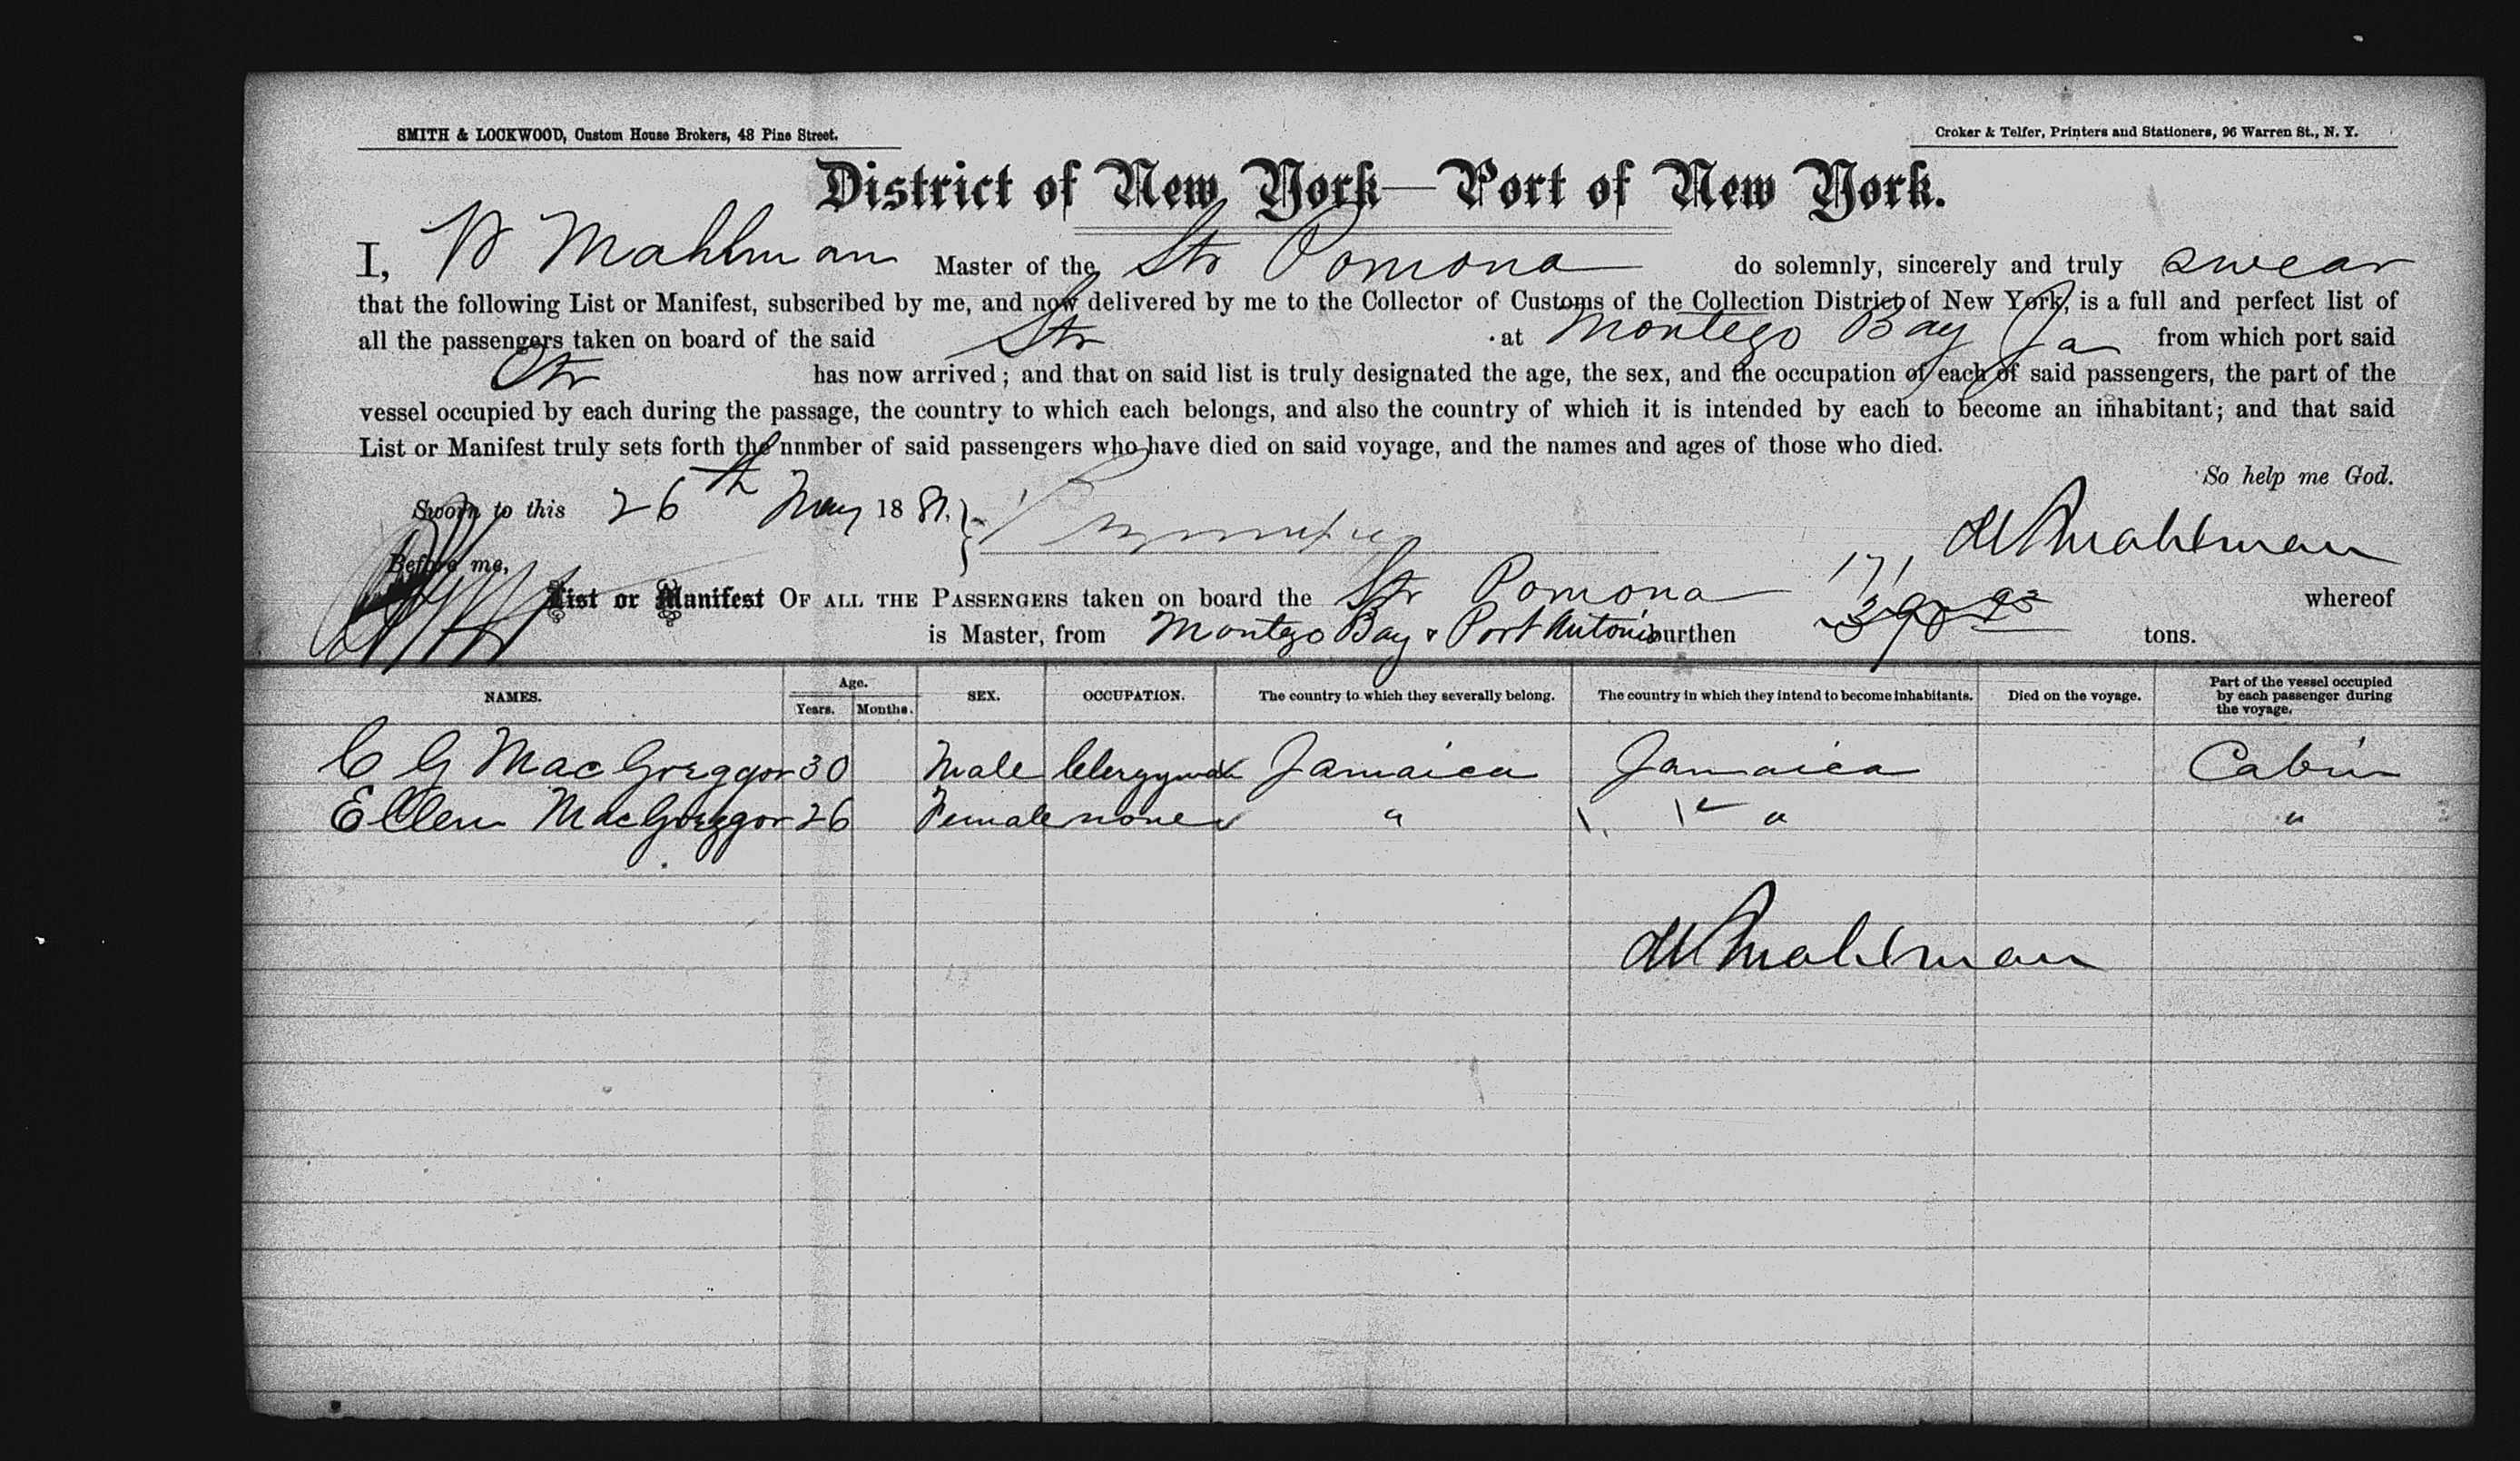 SMITH & LOCKWOOD, Custom House Brokers, 48 Pine Street.
Croker & Telfer, Printers and Stationers, 96 Warren St., N. Y.
District of New York—Port of New York.
I, W Mahlman Master of the Str Pomona do solemnly, sincerely and truly swear
that the following List or Manifest, subscribed by me, and now delivered by me to the Collector of Customs of the Collection District of New York, is a full and perfect list of
all the passengers taken on board of the said Str at Montego Bay Ja from which port said
Str has now arrived; and that on said list is truly designated the age, the sex, and the occupation of each of said passengers, the part of the
vessel occupied by each during the passage, the country to which each belongs, and also the country of which it is intended by each to become an inhabitant; and that said
List or Manifest truly sets forth the nnmber of said passengers who have died on said voyage, and the names and ages of those who died.
So help me God.
Sworn to this 26th May 1881.
W Mahlman
Before me,
171
List or Manifest OF ALL THE PASSENGERS taken on board the Str Pomona whereof
is Master, from Montego Bay & Port Antonio burthen tons.
NAMES. Age. Years. Months. SEX. OCCUPATION. The country to which they severally belong. The country in which they intend to become inhabitants. Died on the voyage. Part of the vessel occupied by each passenger during the voyage.
C G MacGreggor 30 Male Clergyman Jamaica Jamaica Cabin
Ellen MacGreggor 26 Female none " " "
W Mahlman